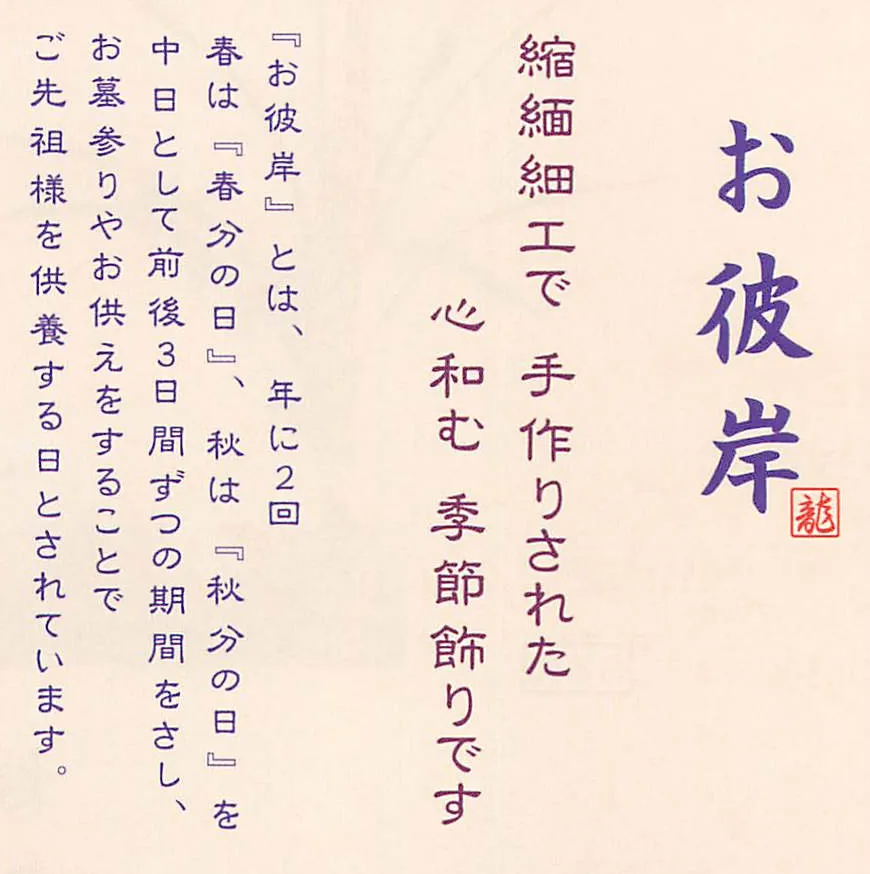 お彼岸
龍
縮緬細工で 手作りされた
心和む 季節飾りです
『お彼岸』とは、 年に2回
春は『春分の日』、秋は『秋分の日』を
中日として前後3日間ずつの期間をさし、
お墓参りやお供えをすることで
ご先祖様を供養する日とされています。